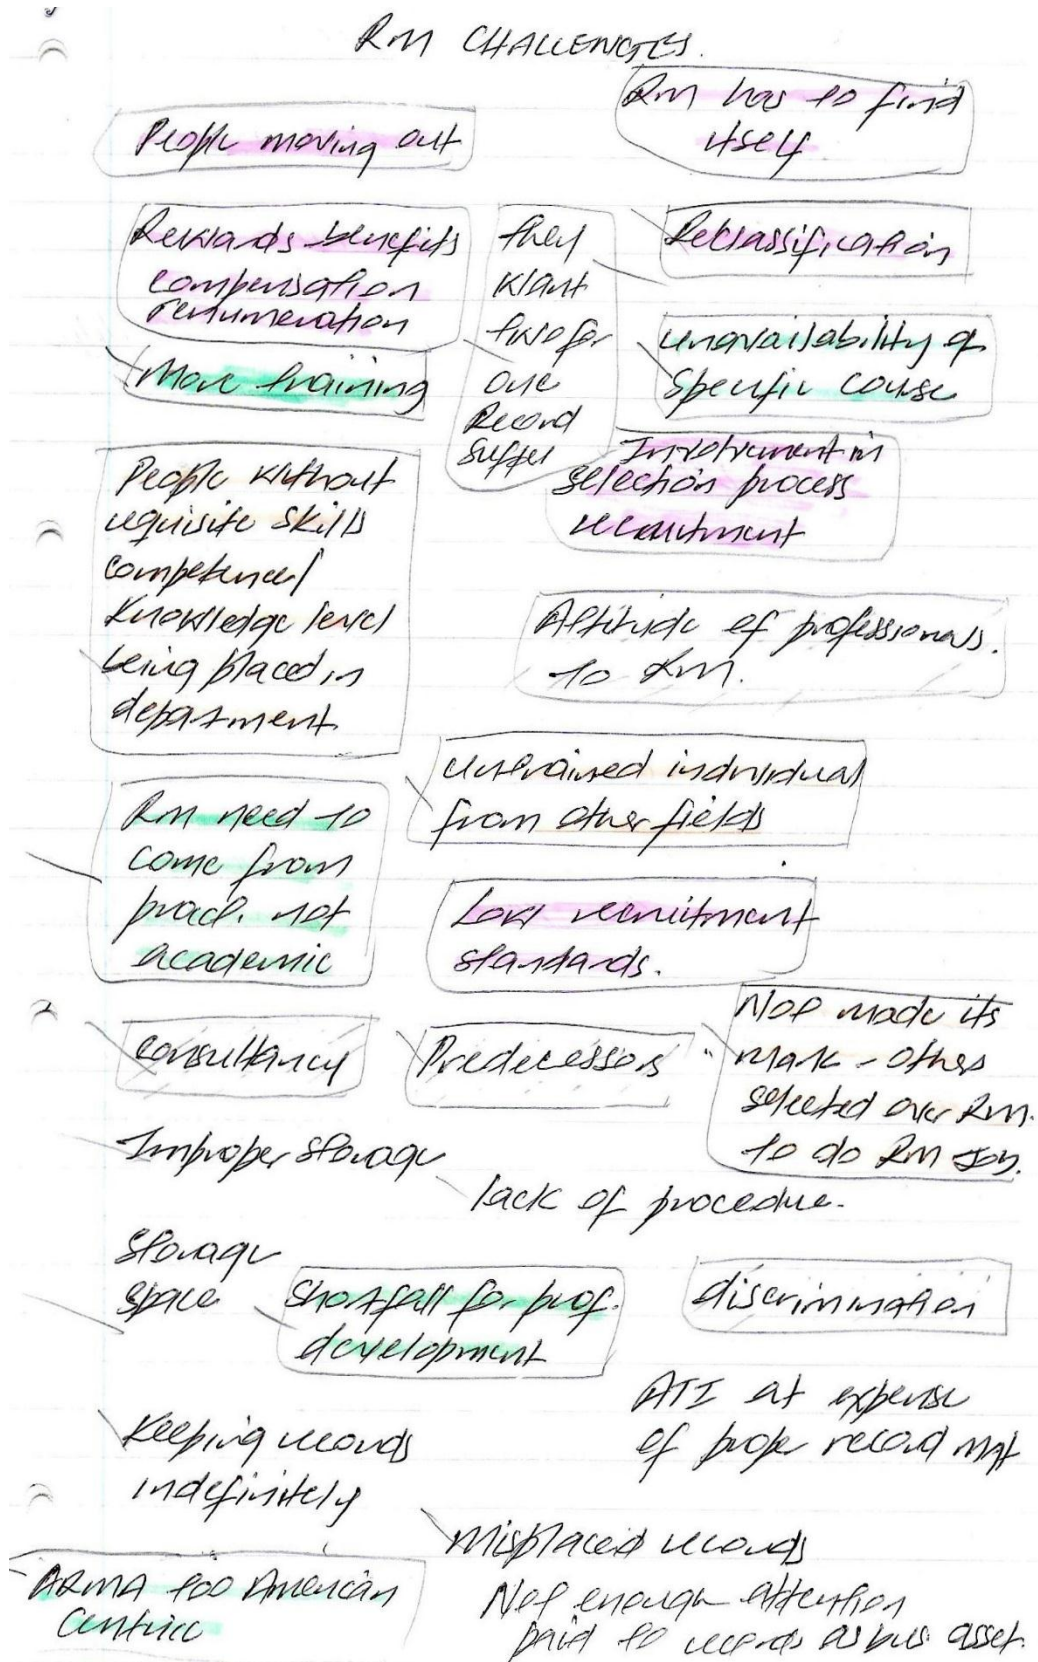 RM CHALLENGES.
RM has to find
itself
People moving out
Rewards benefits
compensation
renumeration
they
want
two for
one
Record
suffer
Reclassification
More training
unavailability of
specific course
Involvement in
selection process
recruitment
People without
requisite skills
competence/
knowledge level
being placed in
department
Attitude of professionals.
to RM.
Untrained individual
from other fields
RM need to
come from
pract. not
academic
Low recruitment
standards.
Consultancy
Predecessors
Not made its
mark - others
selected over RM.
to do RM job.
Improper storage
lack of procedure.
Storage
space
Shortfall for prof.
development
discrimination
ATI at expense
of proper record mgt
Keeping records
indefinitely
Misplaced records
ARMA too American
Centric
Not enough attention
paid to records as bus. asset.